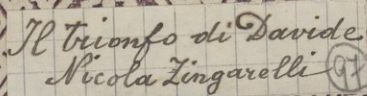 Il trionfo di Davide
Nicola Zingarelli 97